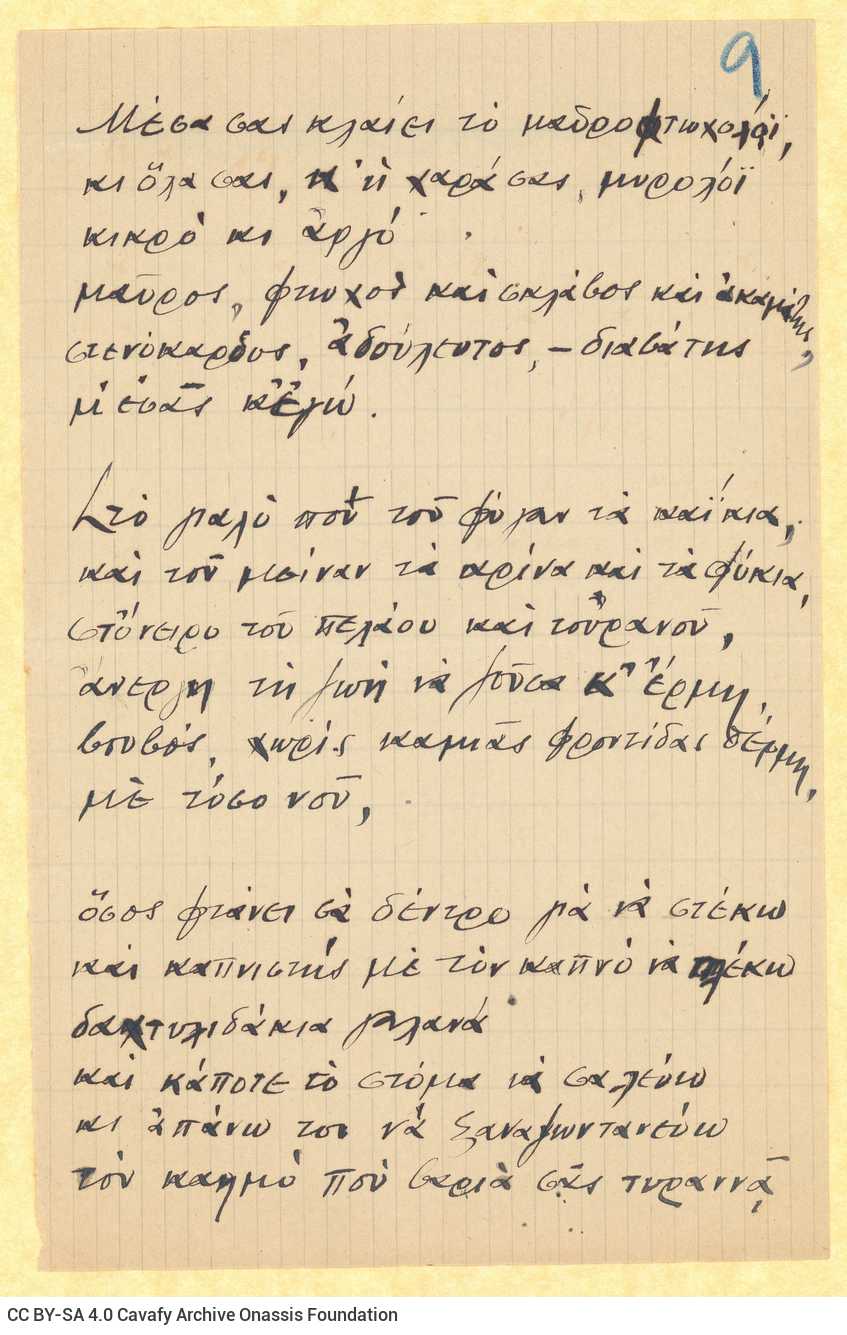 9
Μέσα σας κλαίει τὸ μαῦρο φτωχολόϊ,
κι ὅλα σας, κ' ἡ χαρά σας, μυρολόϊ
πικρὸ κι ἀργό
μαῦρος, φτωχὸς καὶ σκλάβος καὶ ἀκαμάτης,
στενόκαρδος, ἀδούλευτος, – διαβάτης
μ' ἐσᾶς κ' ἐγώ.
Στὸ γιαλὸ ποὺ τοῦ φύγαν τὰ καΐκια,
καὶ τοῦ μείναν τὰ κρίνα καὶ τὰ φύκια,
στ' ὄνειρο τοῦ πελάου καὶ τοὐρανοῦ,
ἄνεργη τὴ ζωὴ νὰ ζοῦσα κ' ἔρμη,
βουβός, χωρὶς καμμιᾶς φροντίδας θέρμη,
μὲ τόσο νοῦ,
ὅσος φτάνει σὰ δέντρο γιὰ νὰ στέκω
καὶ καπνιστὴς μὲ τὸν καπνὸ νὰ πλέκω
δαχτυλιδάκια γαλανά
καὶ κάποτε τὸ στόμα νὰ σαλεύω
κι ἀπάνω του νὰ ξαναζωντανεύω
τὸν καημὸ ποὺ βαριὰ σᾶς τυραννᾶ,
CC BY-SA 4.0 Cavafy Archive Onassis Foundation